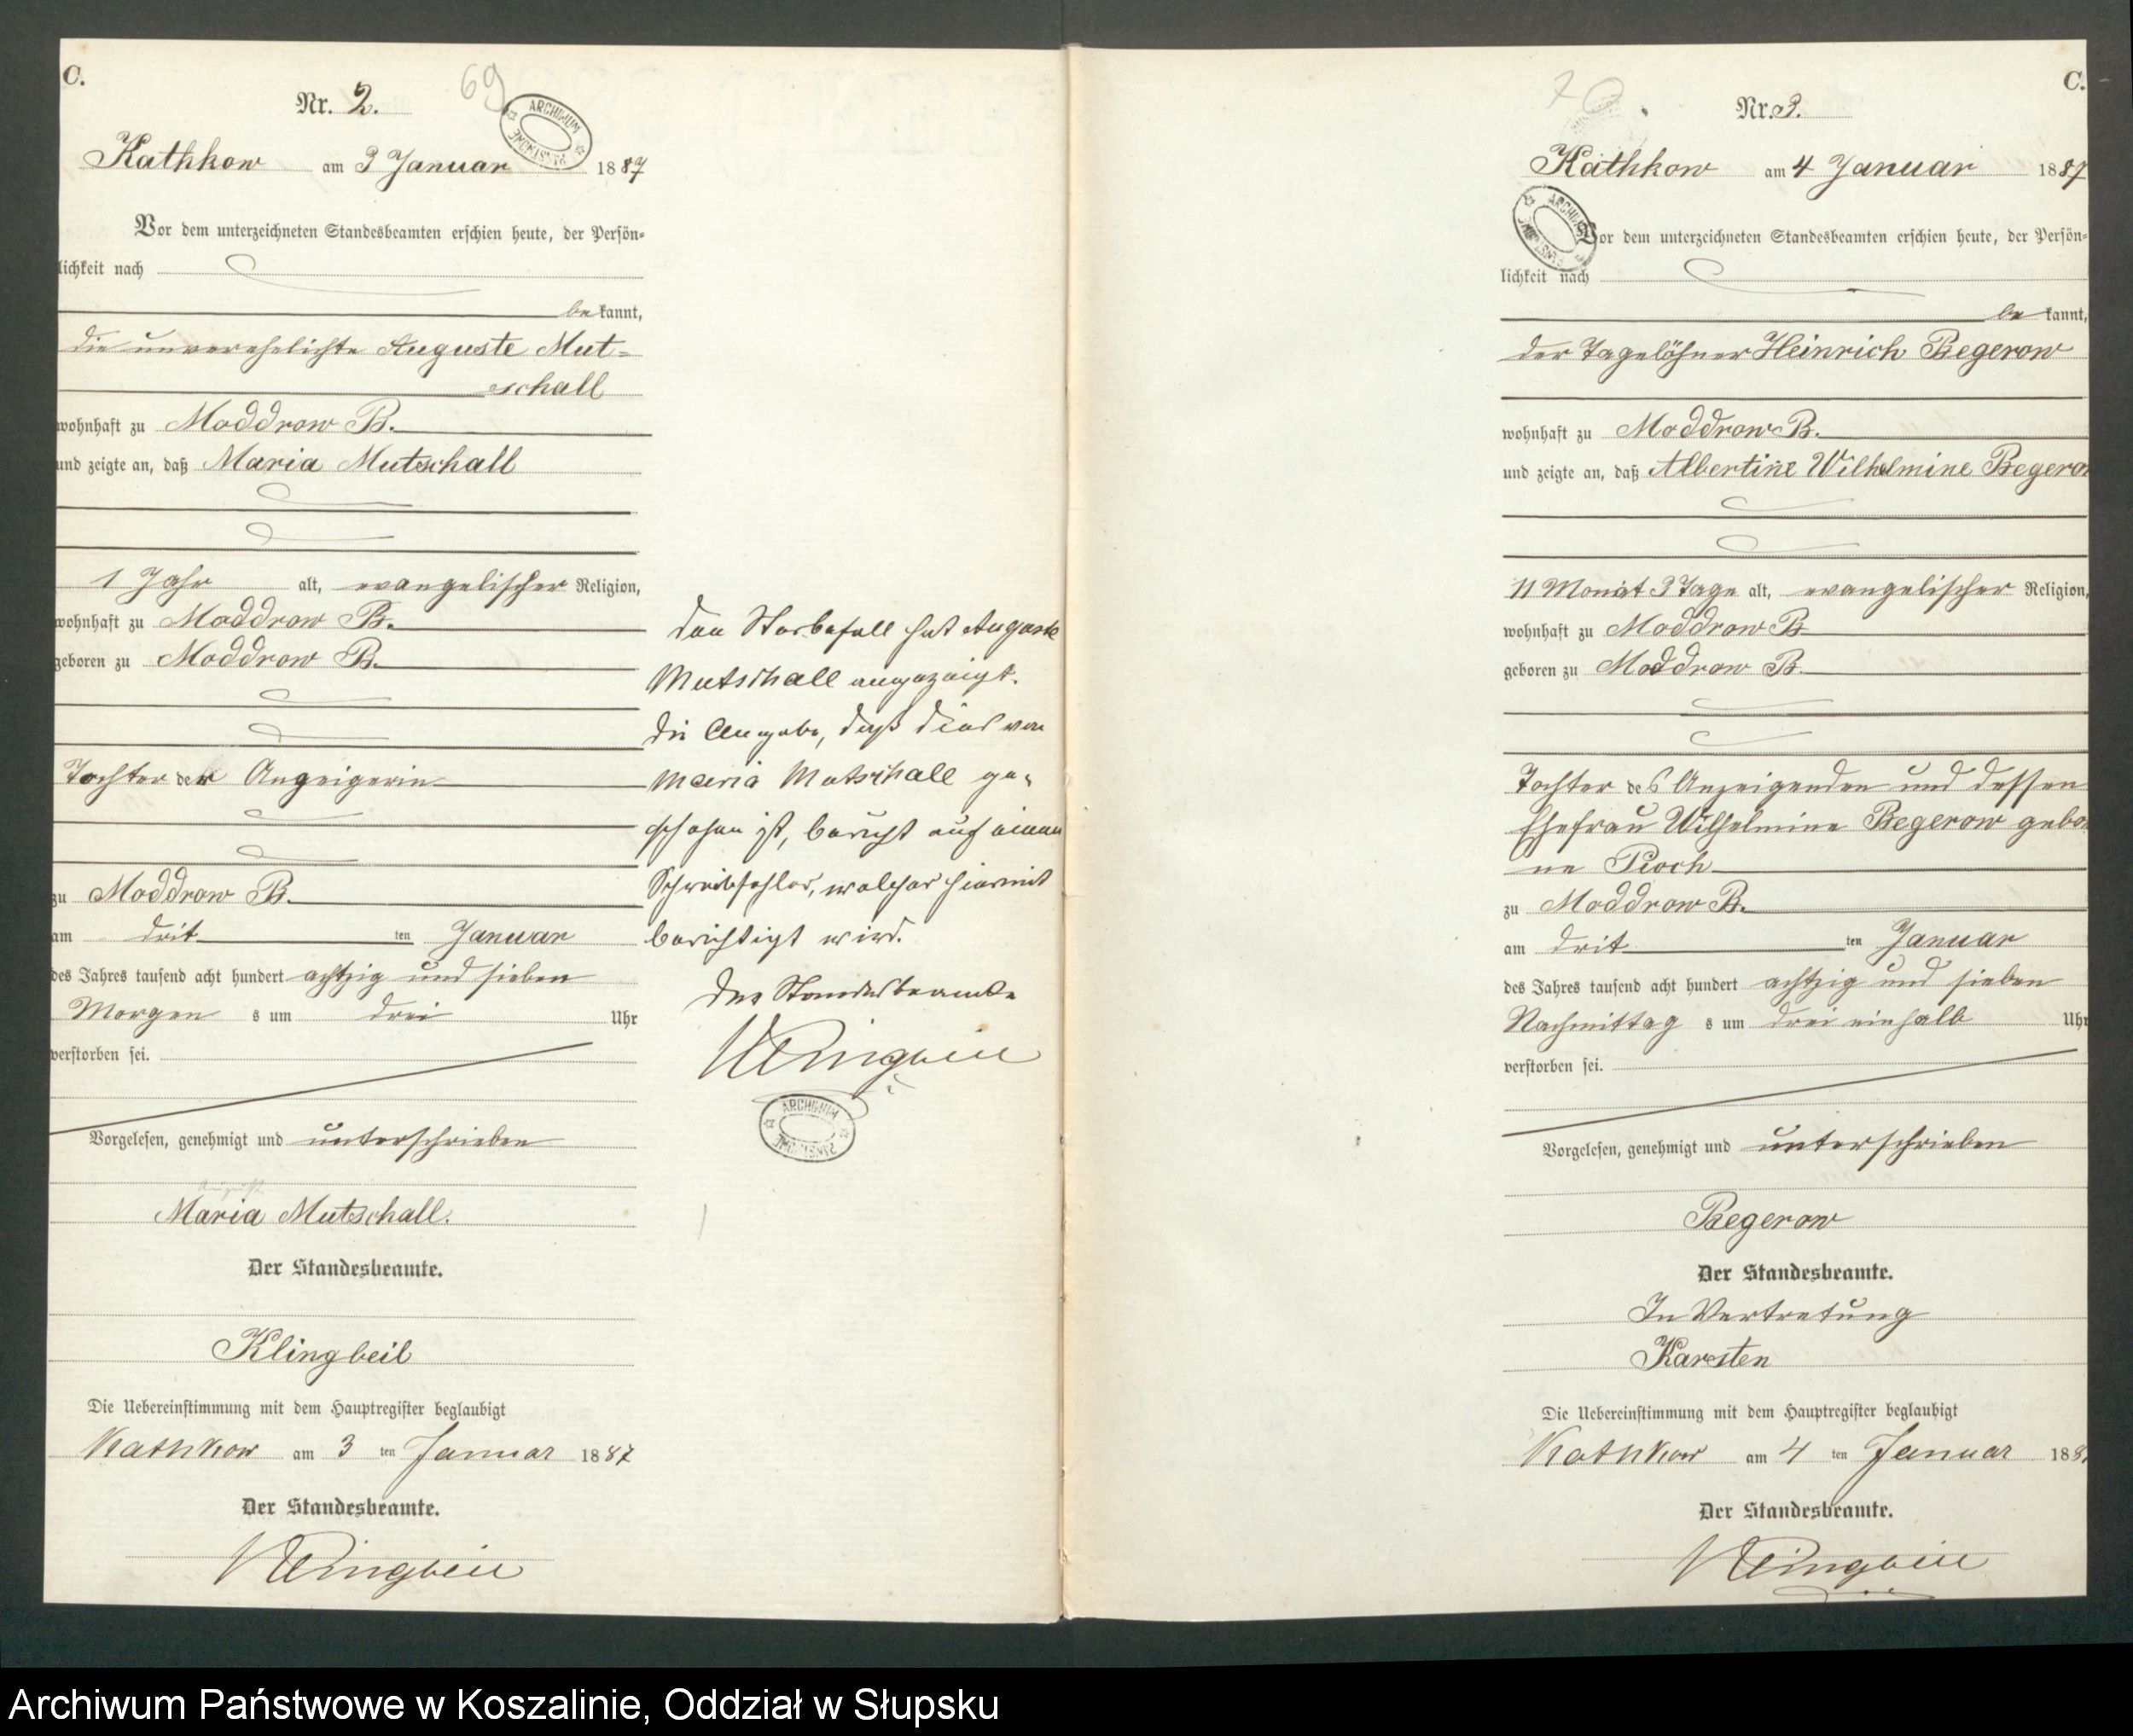 C.
69
Nr. 2.
Kathkow am 3 Januar 1887
Vor dem unterzeichneten Standesbeamten erschien heute, der Persön-
lichkeit nach
bekannt,
die unverehelichte Auguste Mut-
schall
wohnhaft zu Moddrow B.
und zeigte an, daß Maria Mutschall
1 Jahr alt, evangelischer Religion,
wohnhaft zu Moddrow B.
geboren zu Moddrow B.
Tochter der Anzeigerin
zu Moddrow B.
am drit ten Januar
des Jahres tausend acht hundert achtzig und sieben
Morgen s um drei Uhr
verstorben sei.
Vorgelesen, genehmigt und unterschrieben
Maria Mutschall.
Der Standesbeamte.
Klingbeil
Die Uebereinstimmung mit dem Hauptregister beglaubigt
Kathkow am 3 ten Januar 1887
Der Standesbeamte.
Klingbeil
Den Sterbefall hat Auguste
Mutschall angezeigt.
Die Angabe, daß dies von
Maria Mutschall ge-
schehen ist, beruht auf einem
Schreibfehler, welcher hiermit
berichtigt wird.
Der Standesbeamte
Klingbeil
ARCHIWUM PAŃSTWOWE
70
C.
Nr. 3.
Kathkow am 4 Januar 1887
Vor dem unterzeichneten Standesbeamten erschien heute, der Persön-
lichkeit nach
bekannt,
der Tagelöhner Heinrich Begerow
wohnhaft zu Moddrow B.
und zeigte an, daß Albertine Wilhelmine Begerow
11 Monat 3 Tage alt, evangelischer Religion,
wohnhaft zu Moddrow B
geboren zu Moddrow B.
Tochter des Anzeigenden und dessen
Ehefrau Wilhelmine Begerow gebor
ne Pioch
zu Moddrow B.
am drit ten Januar
des Jahres tausend acht hundert achtzig und sieben
Nachmittag s um drei ein halb Uhr
verstorben sei.
Vorgelesen, genehmigt und unterschrieben
Begerow
Der Standesbeamte.
In Vertretung
Karsten
Die Uebereinstimmung mit dem Hauptregister beglaubigt
Kathkow am 4 ten Januar 188
Der Standesbeamte.
Klingbeil
Archiwum Państwowe w Koszalinie, Oddział w Słupsku